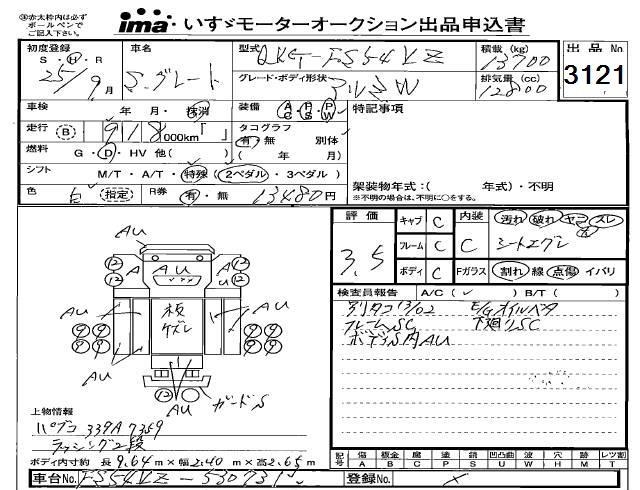 ※赤太枠内は必ず
ボールペンで
ご記入下さい。
ima いすゞモーターオークション出品申込書
初度登録 S・H・R 25年9月
車名 S.グレート
型式 QKG-FS54VZ
グレード・ボディ形状
積載 (kg) 13700
排気量 (cc) 12800
出品No. 3121
車検 年 月・抹消
装備 AC PS PW
特記事項
走行 B 918000km「 」
タコグラフ 有・無 別体 ( 年 月)
燃料 G・D・HV 他( )
シフト M/T・A/T・特殊 (2ペダル・3ペダル)
色 白 指定 R券 有・無 13480円
架装物年式:( 年式)・不明
※不明の場合は、不明に○をする。
評価 3.5
キャブ C 内装 汚れ 破れ ヤニ スレ
フレーム C C シートエグレ
ボディ C Fガラス 割れ 線 点傷 イバリ
検査員報告 A/C( ✓ ) B/T( )
別タコ 13/02 E/Gオイルベタ
フレームSC 下廻りSC
ボディS内AU
AU
12 A AU A 12
12 AU 12
AU 板ズレ AU
9 9 9 9
9 9 9 9
AU AU
12 ガードS
AU
上物情報
パブコ 339A7359
ラッシング2段
ボディ内寸約 長9.64m×幅2.40m×高2.65m
記号 傷A 板金B 腐C 塗P 錆S 凹凸曲U 波W 穴H 跡M レツ割T
車台No. FS54VZ-530731
登録No.